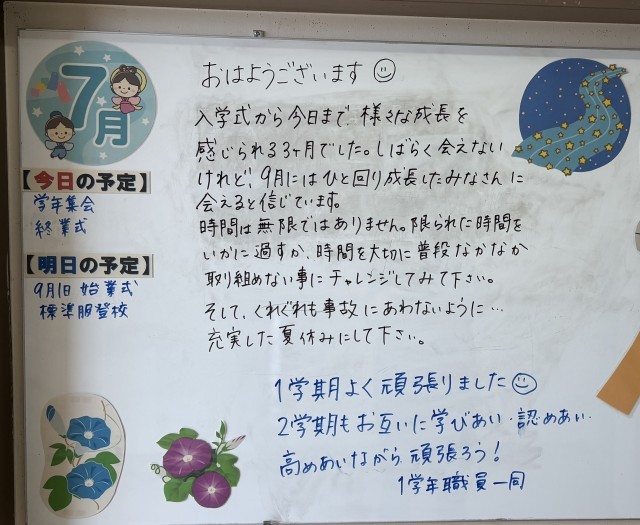 7月
【今日の予定】
学年集会
終業式
【明日の予定】
9月1日 始業式
標準服登校
おはようございます
入学式から今日まで、様々な成長を
感じられる3ヶ月でした。しばらく会えない
けれど、9月にはひと回り成長したみなさんに
会えると信じています。
時間は無限ではありません。限られた時間を
いかに過すか、時間を大切に普段なかなか
取り組めない事にチャレンジしてみて下さい。
そして、くれぐれも事故にあわないように…
充実した夏休みにして下さい。
1学期よく頑張りました
2学期もお互いに学びあい・認めあい・
高めあいながら頑張ろう!
1学年職員一同